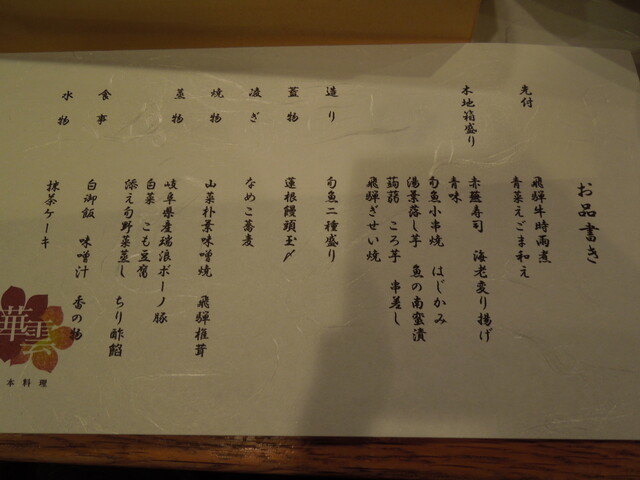 お品書き
先付
飛騨牛時雨煮
青菜えごま和え
木地箱盛り
赤蕪寿司 海老変り揚げ
青味
旬魚小串焼 はじかみ
湯葉落し芋 魚の南蛮漬
蒟蒻 ころ芋 串差し
飛騨ぎせい焼
造り
旬魚二種盛り
蓋物
蓮根饅頭玉〆
凌ぎ
なめこ蕎麦
焼物
山菜朴葉味噌焼 飛騨椎茸
蒸物
岐阜県産瑞浪ボーノ豚
白菜 こも豆腐
添え旬野菜蒸し ちり酢餡
食事
白御飯 味噌汁 香の物
水物
抹茶ケーキ
華雲
本料理